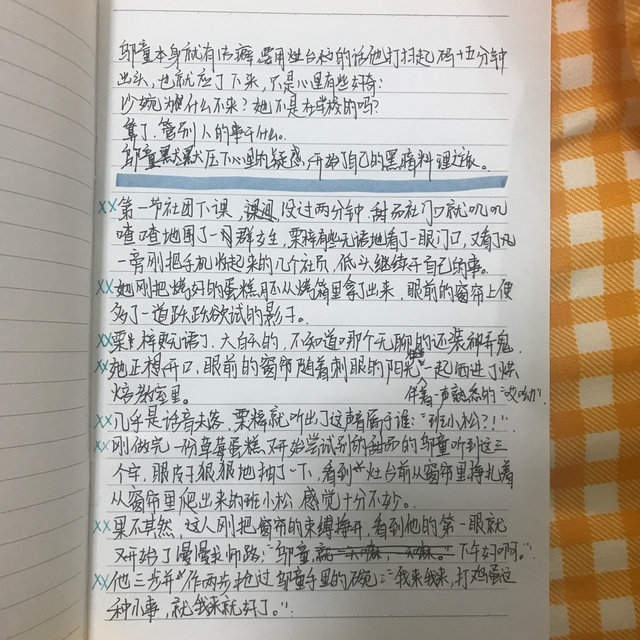 邬童本身就有洁癖,要用灶台的话他打扫起码十五分钟
出头,也就应了下来,只是心里有些好奇:
沙婉为什么不来?她不是在学校的吗?
算了,管别人的事干什么。
邬童默默压下心里的疑惑,开始了自己的黑暗料理之旅。
××第一节社团下课,没过两分钟,甜品社门口就叽叽
喳喳地围了一群女生,栗梓有些无语地看了一眼门口,又看了几
旁刚把手机收起来的几个社员,低头继续干自己的事。
××她刚把烤好的蛋糕胚从烤箱里拿出来,眼前的窗帘上便
多了一道跃跃欲试的影子。
××栗梓无语了,大白天的,不知道哪个无聊的还装神弄鬼。
××她正想开口,眼前的窗帘随着刺眼的阳光一起洒进了烘
焙教室里。
伴着一声熟悉的“哎呦”
××几乎是话音未落,栗梓就听出了这声音属于谁:“班小松?!”
××刚做完一份草莓蛋糕又开始尝试别的甜品的邬童听到这三
个字,眼皮子狠狠地抽了一下,看到灶台前从窗帘里挣扎着
从窗帘里爬出来的班小松,感觉十分不妙。
××果不其然,这人刚把窗帘的束缚挣开,看到他的第一眼就
又开始了漫漫求师路:“邬童,下午好啊。”
××他三步并作两步抢过邬童手里的碗:“我来我来,打鸡蛋这
种小事,就我来就好了。”